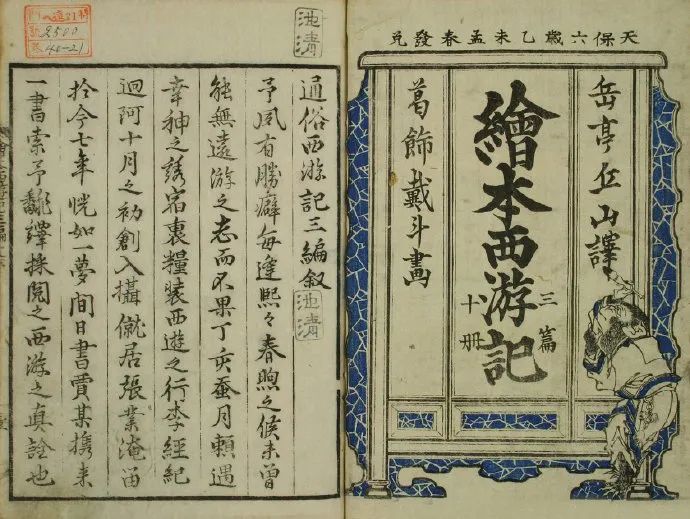 天保六歳乙未孟春發兌
岳亭丘山譯
繪本西游記
三篇
十冊
葛飾戴斗畫
池清
通俗西游記三編叙
池清
予夙有勝癖每逢熙々春煦之候未曽
能無遠游之志而不果丁亥蚕月頼遇
幸神之誘宿裹糧装西遊之行李經紀
迴阿十月之初創入攝僦居張業淹留
於今七年恍如一夢間日書賈某携来
一書索予飜繹採閲之西游之真詮也
2500
40-21